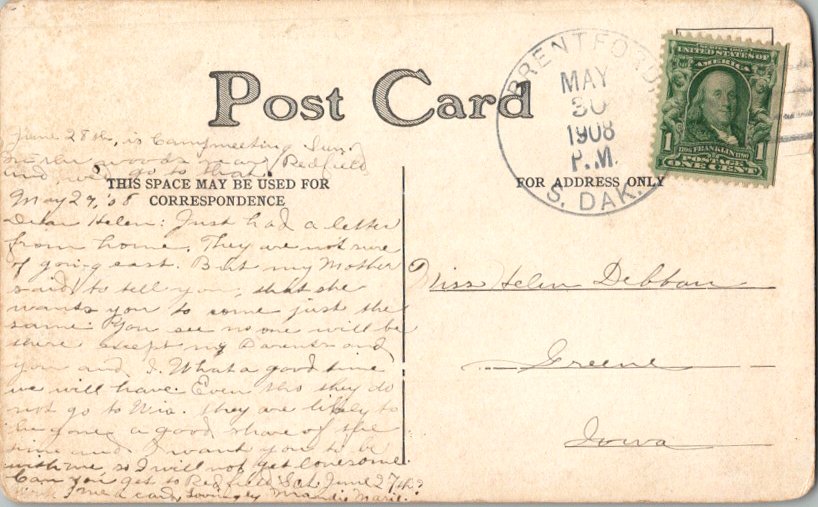 Post Card
BRENTFORD
MAY
30
1908
P.M.
S. DAK.
SERIES 1902
UNITED STATES OF
AMERICA
1 FRANKLIN 1
POSTAGE
ONE CENT
June 28th, is Campmeeting Sun.
in the woods near Redfield
and will go to that.
THIS SPACE MAY BE USED FOR
CORRESPONDENCE
FOR ADDRESS ONLY
May 29, '08
Dear Helen: Just had a letter
from home. They are not sure
of going east. But my Mother
said to tell you, that she
wants you to come just the
same. You see no one will be
there except my Parents and
you and I. What a good time
we will have. Even tho they do
not go to Wis. they are likely to
be gone a good share of the
time and I want you to be
with me, so I will not get lonesome.
Can you get to Redfield Sat. June 27th?
me a card, Lovingly Marie.
Miss Helen Debban
Greene
Iowa